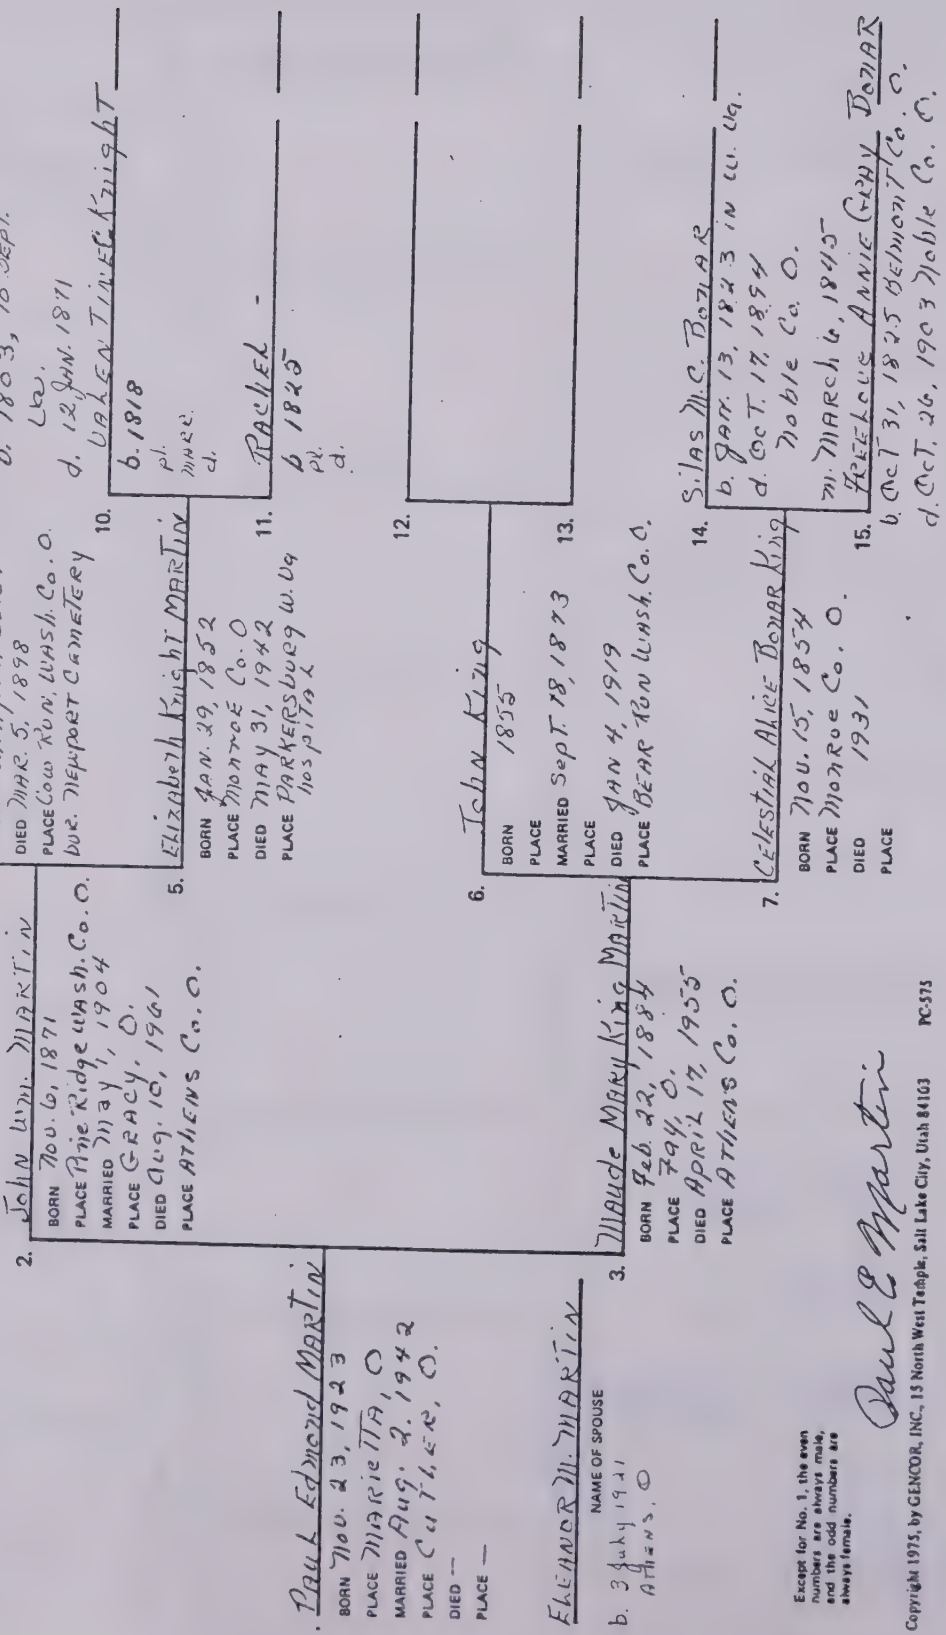 . PAUL Edmond MARTIN
BORN Nov. 23, 1923
PLACE MARIETTA, O
MARRIED Aug. 2. 1942
PLACE CUTLER, O.
DIED —
PLACE —
ELEANOR M. MARTIN
NAME OF SPOUSE
b. 3 July 1921
ATHENS. O
2.
John Wm. MARTIN
BORN Nov. 6, 1871
PLACE Pine Ridge WASh. Co. O.
MARRIED May 1, 1904
PLACE GRACY, O.
DIED Aug. 10, 1961
PLACE ATHENS Co. O.
3.
MAUDE MARY King MARTIN
BORN Feb. 22, 1884
PLACE FAY, O.
DIED APRIL 17, 1955
PLACE ATHENS Co. O.
DIED MAR. 5, 1898
PLACE COW RUN, WASH. Co. O.
BUR. NEWPORT CEMETERY
5.
ELIZABETH Knight MARTIN
BORN JAN. 29, 1852
PLACE MONROE Co. O
DIED MAY 31, 1942
PLACE PARKERSBURG W. Va
hospital
6.
John King
BORN 1855
PLACE
MARRIED Sept. 18, 1873
PLACE
DIED JAN 4, 1919
PLACE BEAR RUN WASh. Co. O.
7.
CELESTIAL ALICE BONAR King
BORN Nov. 15, 1854
PLACE MONROE Co. O.
DIED 1931
PLACE
1803, 10 SEPT.
d. 12 JAN. 1871
10.
VALENTINE Knight
b. 1818
pl.
MARR.
d.
11.
RACHEL -
b 1825
pl.
d.
12.
13.
14.
SILAS M.C. BONAR
b. JAN. 13, 1823 IN W. Va.
d. OCT. 17, 1894
Noble Co. O.
m. MARCH 6, 1845
15.
FREELOVE ANNIE GRAY BONAR
b. OCT 31, 1825 BELMONT Co. O.
d. OCT. 26, 1903 Noble Co. O.
Except for No. 1, the even
numbers are always male,
and the odd numbers are
always female.
Paul E Martin
Copyright 1975, by GENCOR, INC., 15 North West Temple, Salt Lake City, Utah 84103 PC-575